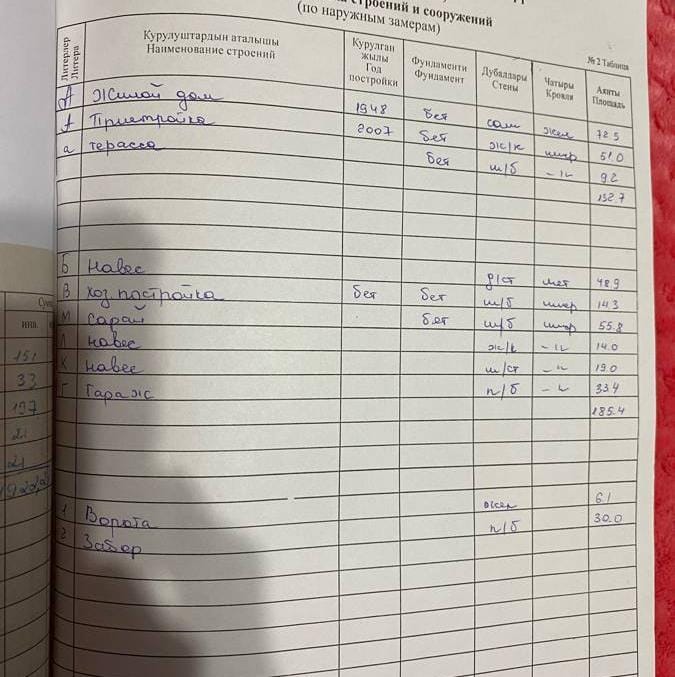 строений и сооружений
(по наружным замерам)
№ 2 Таблица
Литерлер Литера
Курулуштардын аталышы Наименование строений
Курулган жылы Год постройки
Фундаменти Фундамент
Дубалдары Стены
Чатыры Кровля
Аянты Площадь
А Жилой дом 1948 бет сам жел 72.5
А Пристройка 2007 бет ж/к шифр 51.0
а терасса бет ш/б -"- 9.2
132.7
Б Навес д/ст мет 48.9
В Хоз. постройка бет бет ш/б шифр 14.3
М Сарай бет ш/б шифр 55.8
Л навес ж/к -"- 14.0
К навес ш/ст -"- 19.0
Г Гараж п/б -"- 33.4
185.4
1 Ворота жел 6.1
2 Забор п/б 30.0
инв.
151
33
197
21
21